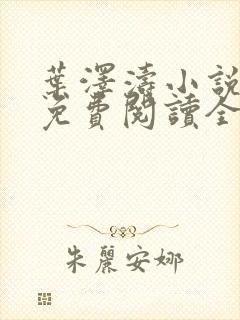 葉澤濤小説
免費閱讀全
朱麗安娜